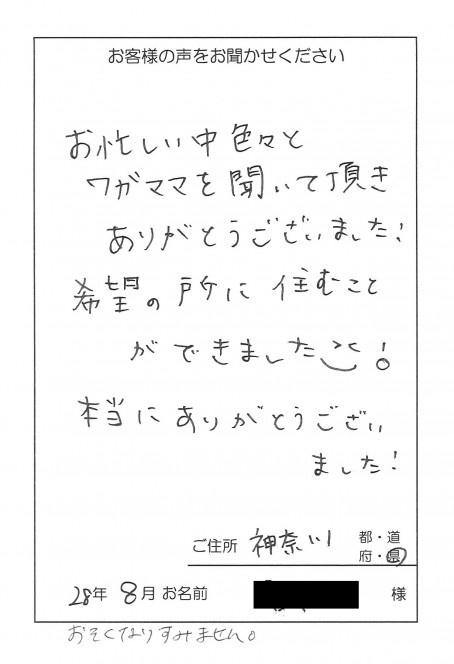 お客様の声をお聞かせください
お忙しい中色々と
ワガママを聞いて頂き
ありがとうございました!
希望の所に住むこと
ができました!
本当にありがとうござい
ました!
ご住所 神奈川 都・道
府・県
28年 8月 お名前 様
おそくなりすみません。